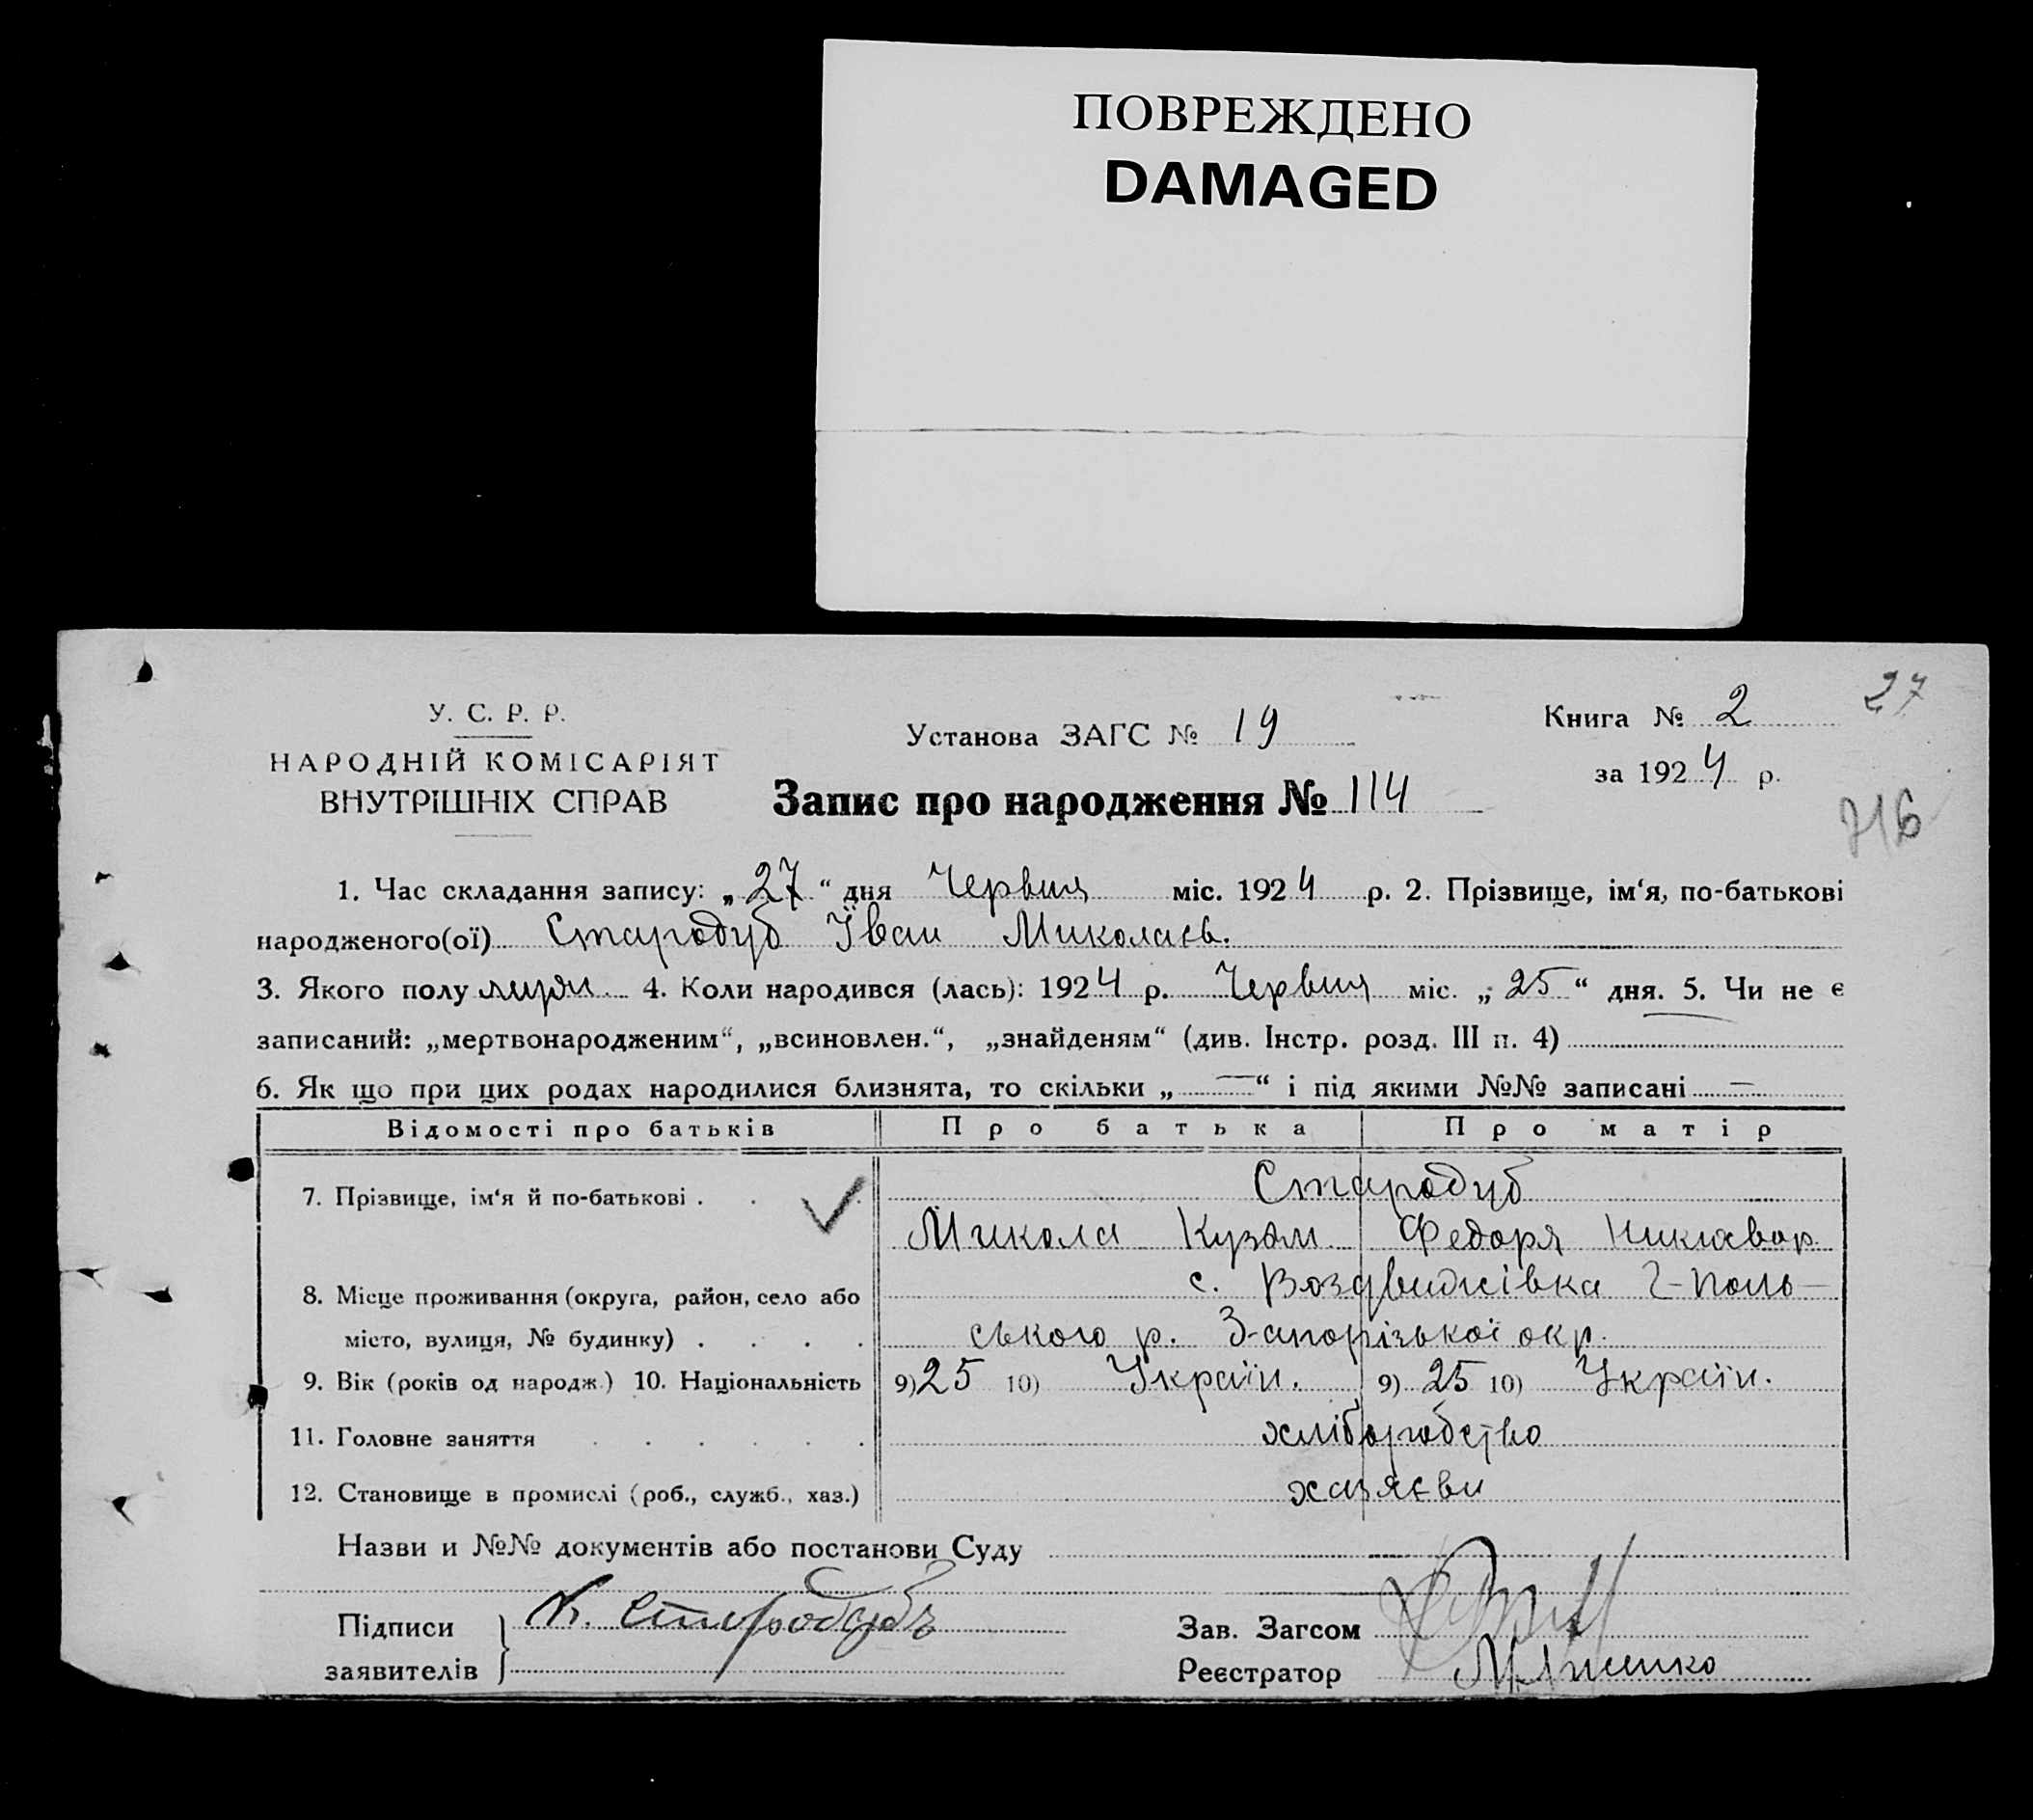 ПОВРЕЖДЕНО
DAMAGED
27
У. С. Р. Р.
НАРОДНІЙ КОМІСАРІЯТ
ВНУТРІШНІХ СПРАВ
Установа ЗАГС № 19
Книга № 2
за 1924 р.
Запис про народження № 114
716
1. Час складання запису: „27“ дня Червня міс. 1924 р. 2. Прізвище, ім‘я, по-батькові
народженого(ої) Стародуб Іван Миколаєв.
3. Якого полу 4. Коли народився (лась): 1924 р. Червня міс. „25“ дня. 5. Чи не є
записаний: „мертвонародженим“, „всиновлен.“, „знайденям“ (див. Інстр. розд. III п. 4)
6. Як що при цих родах народилися близнята, то скільки „—“ і під якими №№ записані —
Відомості про батьків Про батька Про матір
7. Прізвище, ім‘я й по-батькові . . . Стародуб
Микола Кузьм. Федора Никиавор
8. Місце проживання (округа, район, село або с. Воздвижівка Г-Поль-
місто, вулиця, № будинку) . . . . ського р. Запорізької окр.
9. Вік (років од народж.) 10. Національність 9) 25 10) Україн. 9) 25 10) Україн.
11. Головне заняття . . . . . . хліборобство
12. Становище в промислі (роб., служб., хаз.) хазяєви
Назви и №№ документів або постанови Суду
Підписи Н. Стородубъ Зав. Загсом
заявителів Реєстратор